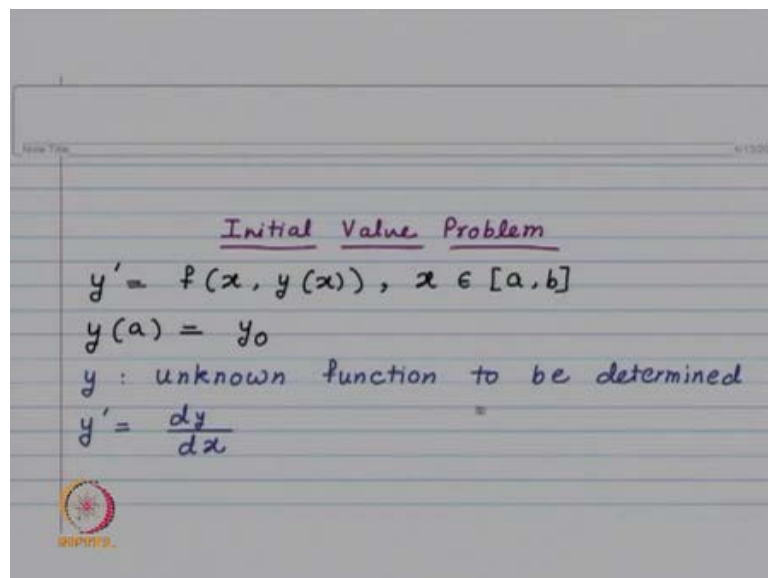 Note Title
Initial Value Problem
y' = f(x, y(x)), x ∈ [a,b]
y(a) = y₀
y : unknown function to be determined
y' = dy/dx